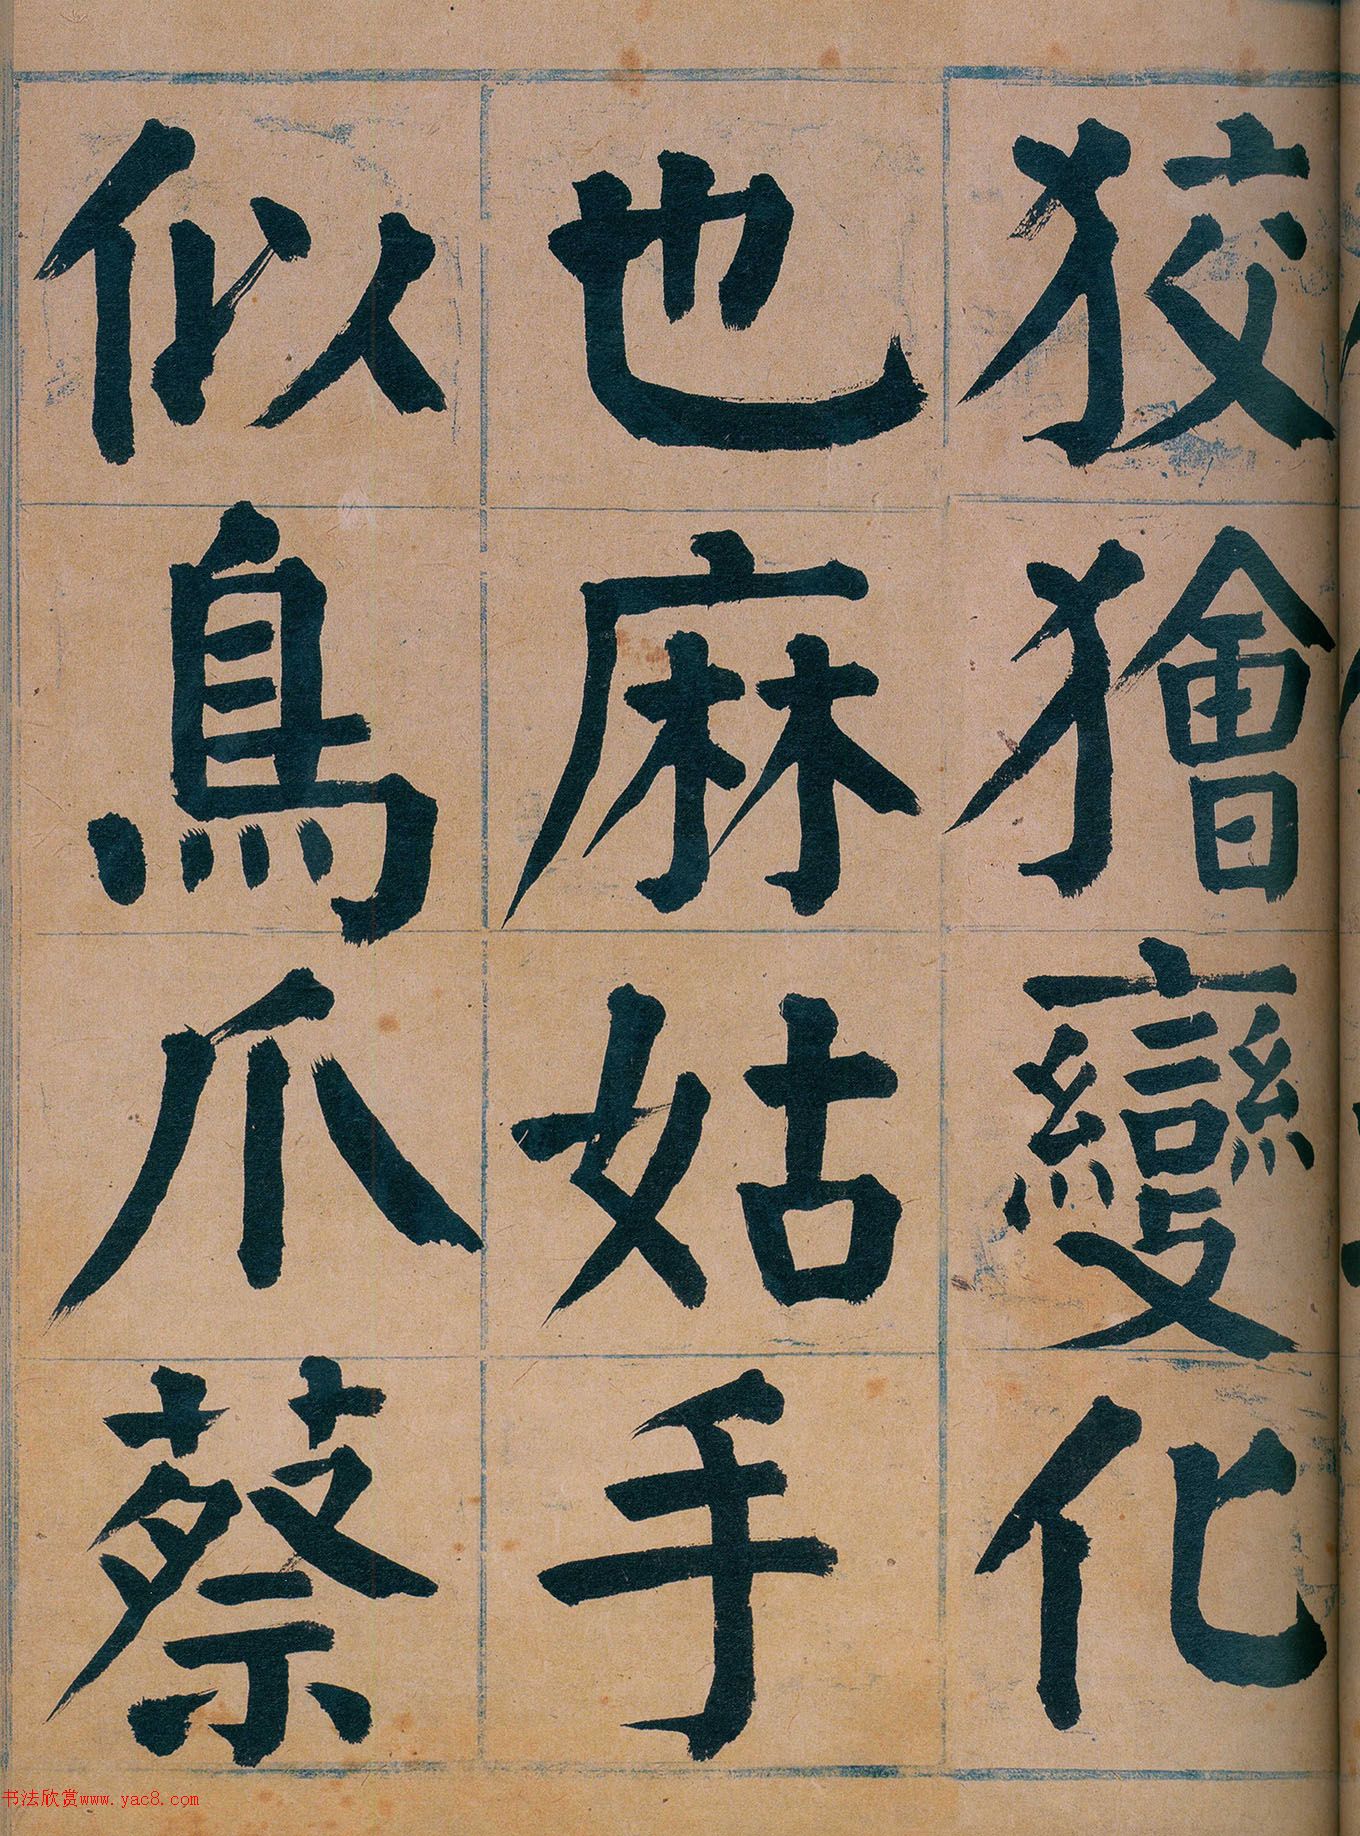 狡獪變化
也麻姑手
似鳥爪蔡
书法欣赏www.yac8.com